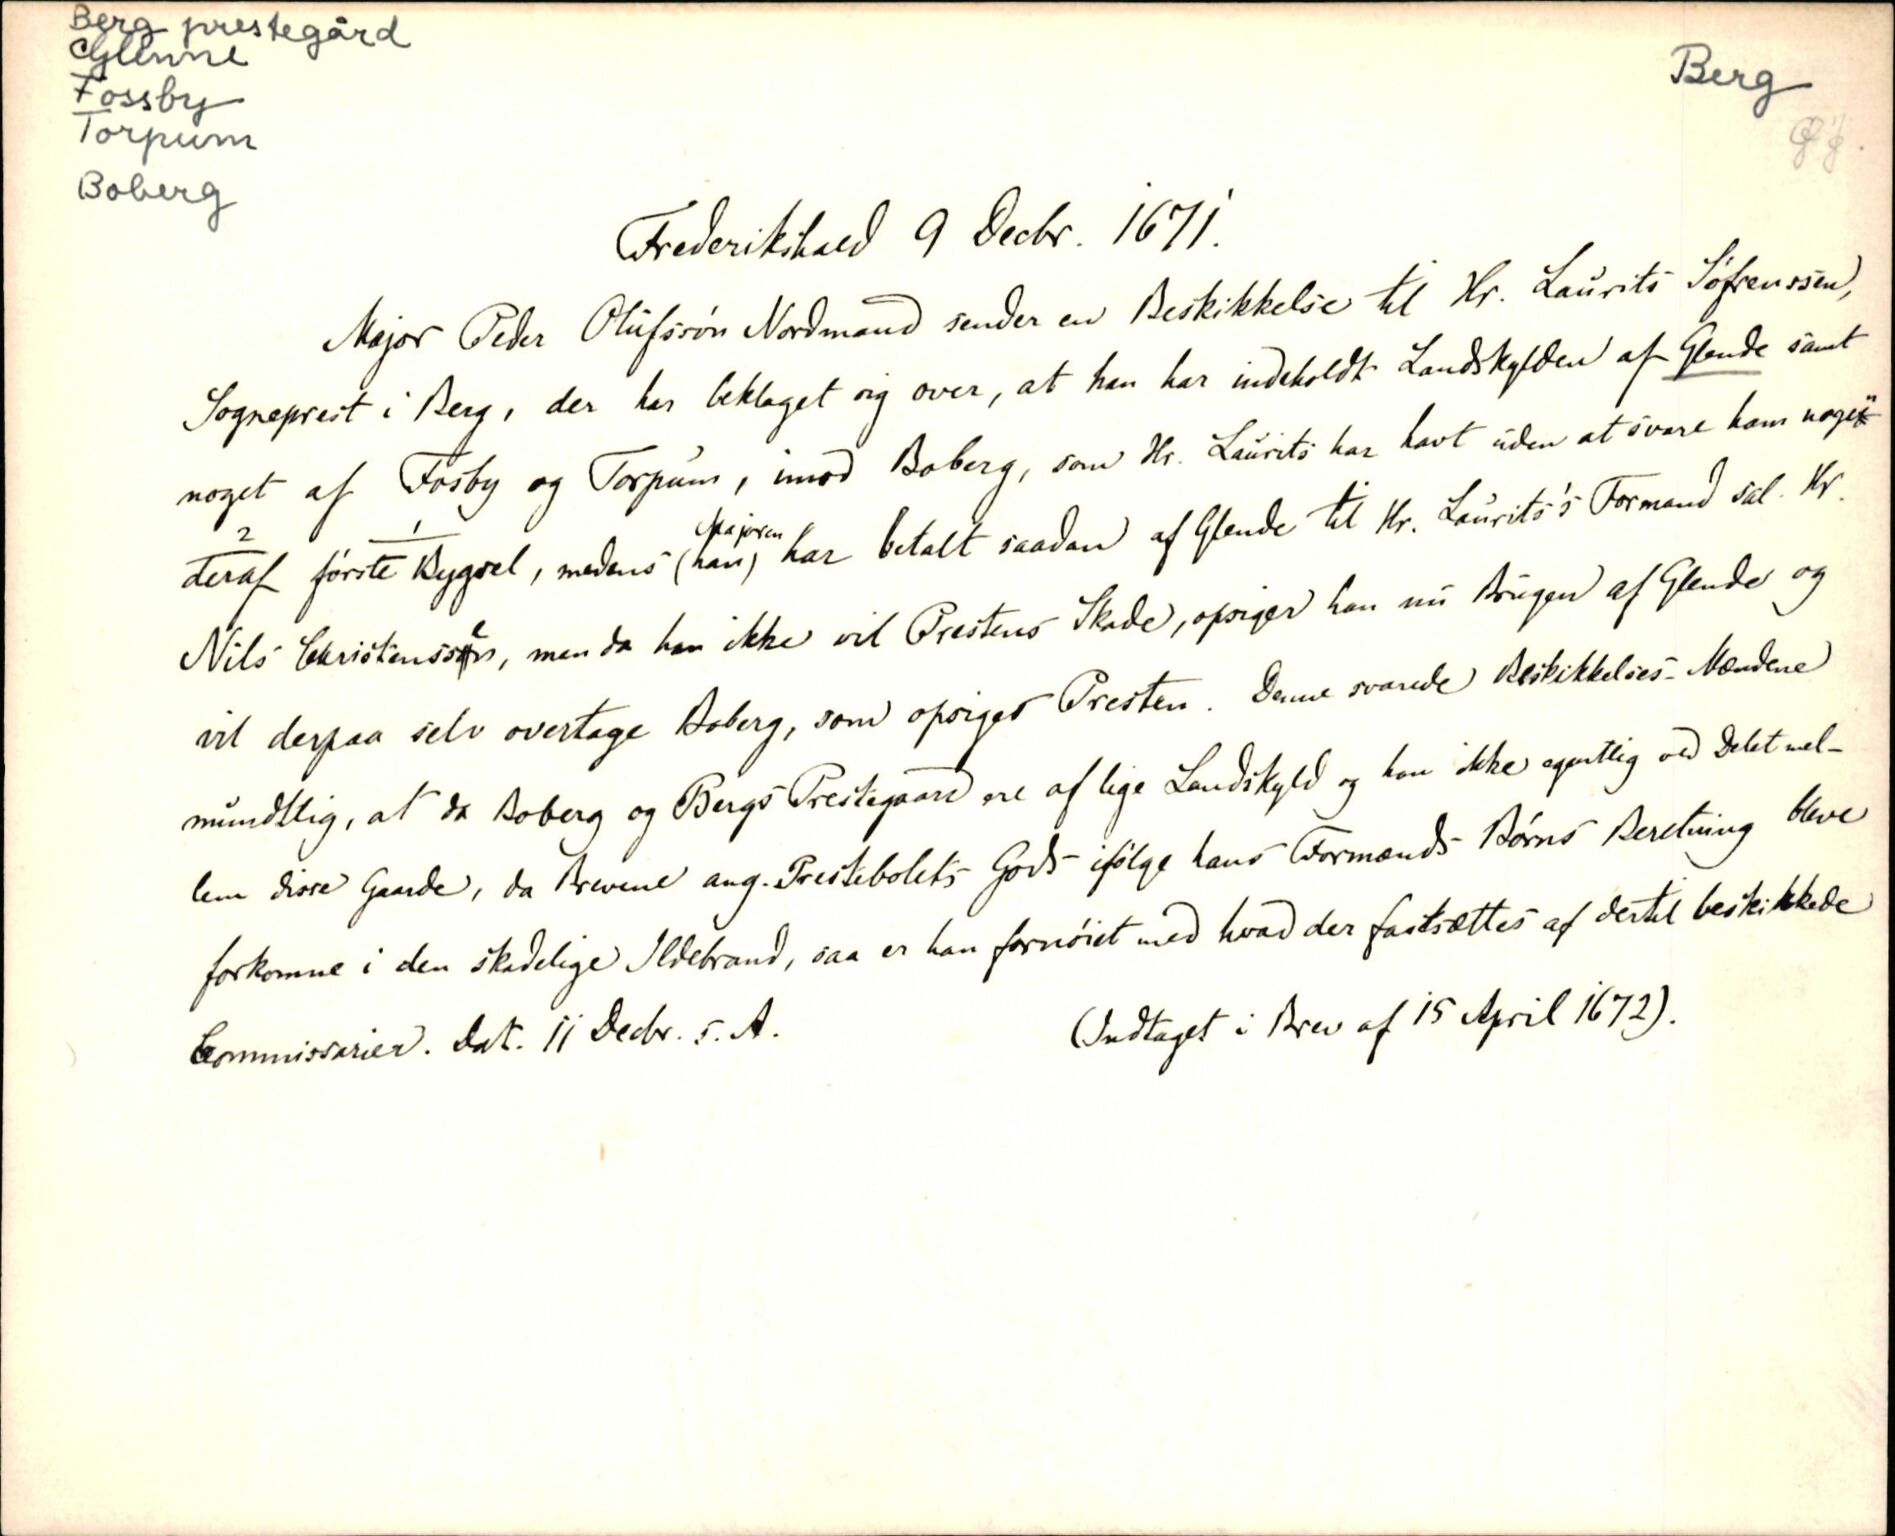 Berg prestegård
Glenne
Fossby
Torpum
Boberg
Berg
Frederikshald 9 Decbr. 1671.
Major Peder Olufssön Nordmand sender en Beskikkelse til Hr. Laurits Söfrenssen,
Sogneprest i Berg, der har beklaget sig over, at han har indeholdt Landskylden af Glende samt
noget af Fosby og Torpum, imod Boberg, som Hr. Laurits har havt uden at svare ham noget
2 1 Majoren
deraf förste Bygsel, medens (han) har betalt saadan af Glende til Hr. Laurits's Formand sal. Hr.
Nils Christenssen, men da han ikke vil Prestens Skade, opsiger han nu Brugen af Glende og
vil derpaa selv overtage Boberg, som opsiges Presten. Denne svarede Beskikkelses-Mændene
mundtlig, at da Boberg og Bergs Prestegaard ere af lige Landskyld og han ikke egentlig ved Delet mel-
lem disse Gaarde, da Brevene ang. Prestebolets Gods ifölge hans Formands Börns Beretning bleve
forkomne i den skadelige Ildebrand, saa er han fornöiet med hvad der fastsættes af dertil beskikkede
Commissarier. Dat. 11 Decbr. s. A. (Indtaget i Brev af 15 April 1672).